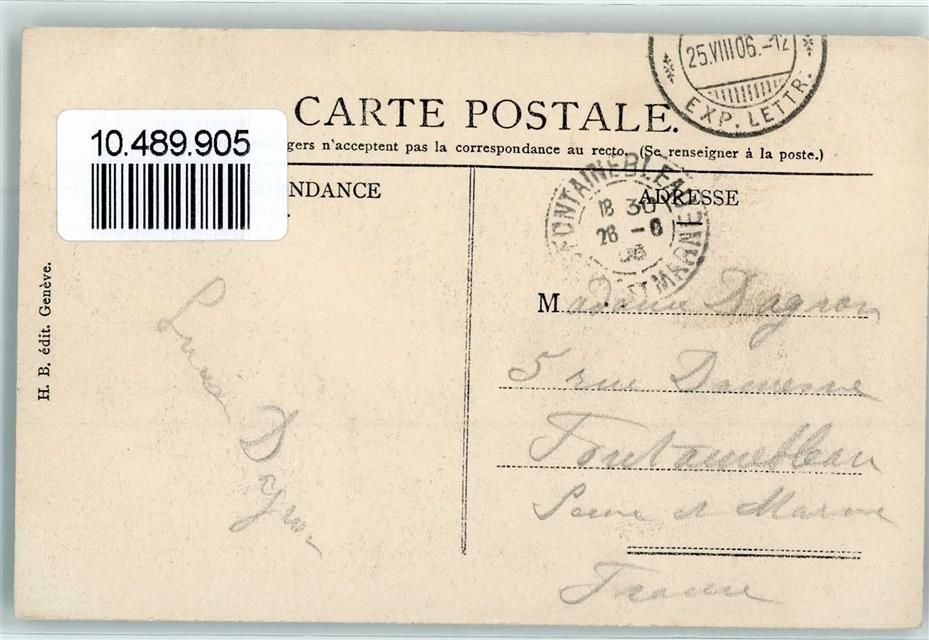 25.VIII.06.-12
EXP. LETTR.
CARTE POSTALE.
10.489.905
gers n'acceptent pas la correspondance au recto. (Se renseigner à la poste.)
NDANCE
ADRESSE
FONTAINEBLEAU
18 30
26 - 8
06
ET MARNE
H. B. édit. Genève.
Madame Dagron
5 rue Damesme
Fontainebleau
Seine et Marne
France
Dagron